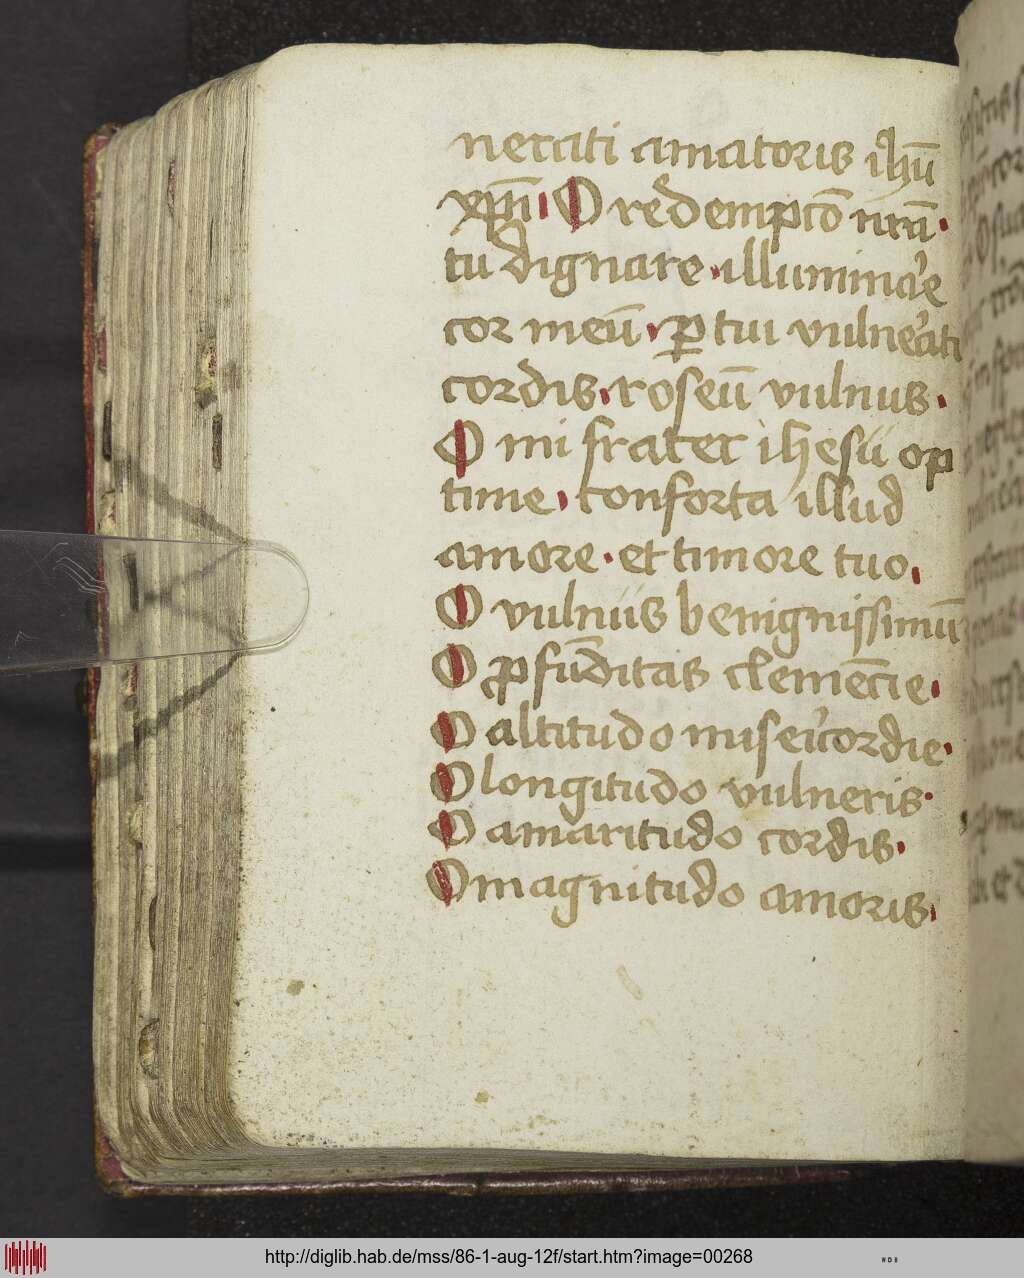 nerati amatoris ihū
xp̄ni O redemptõ nrm̄.
tu dignare illumina᾽e
cor meū p̱ tui vulne᾽ati
cordis roseū vulnus.
O mi frater ihesu op
time conforta illud
amore et timore tuo.
O vulnus benignissimū
O ꝓfūditas clemēcie.
O altitudo misei᾽cordie.
O longitudo vulneris.
O amaritudo cordis.
O magnitudo amoris.
http://diglib.hab.de/mss/86-1-aug-12f/start.htm?image=00268